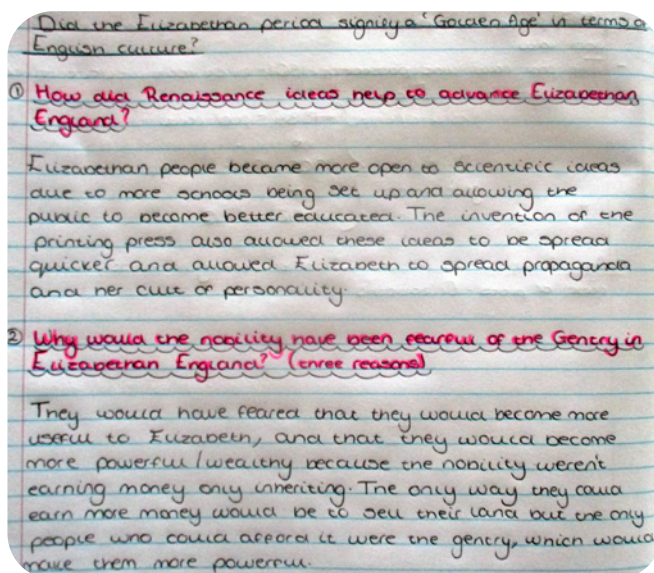 Did the Elizabethan period signify a 'Golden Age' in terms of
English culture?
① How did Renaissance ideas help to advance Elizabethan
England?
Elizabethan people became more open to scientific ideas
due to more schools being set up and allowing the
public to become better educated. The invention of the
printing press also allowed these ideas to be spread
quicker and allowed Elizabeth to spread propaganda
and her cult of personality.
② Why would the nobility have been fearful of the Gentry in
Elizabethan England? (three reasons)
They would have feared that they would become more
useful to Elizabeth, and that they would become
more powerful/wealthy because the nobility weren't
earning money only inheriting. The only way they could
earn more money would be to sell their land but the only
people who could afford it were the gentry, which would
make them more powerful.